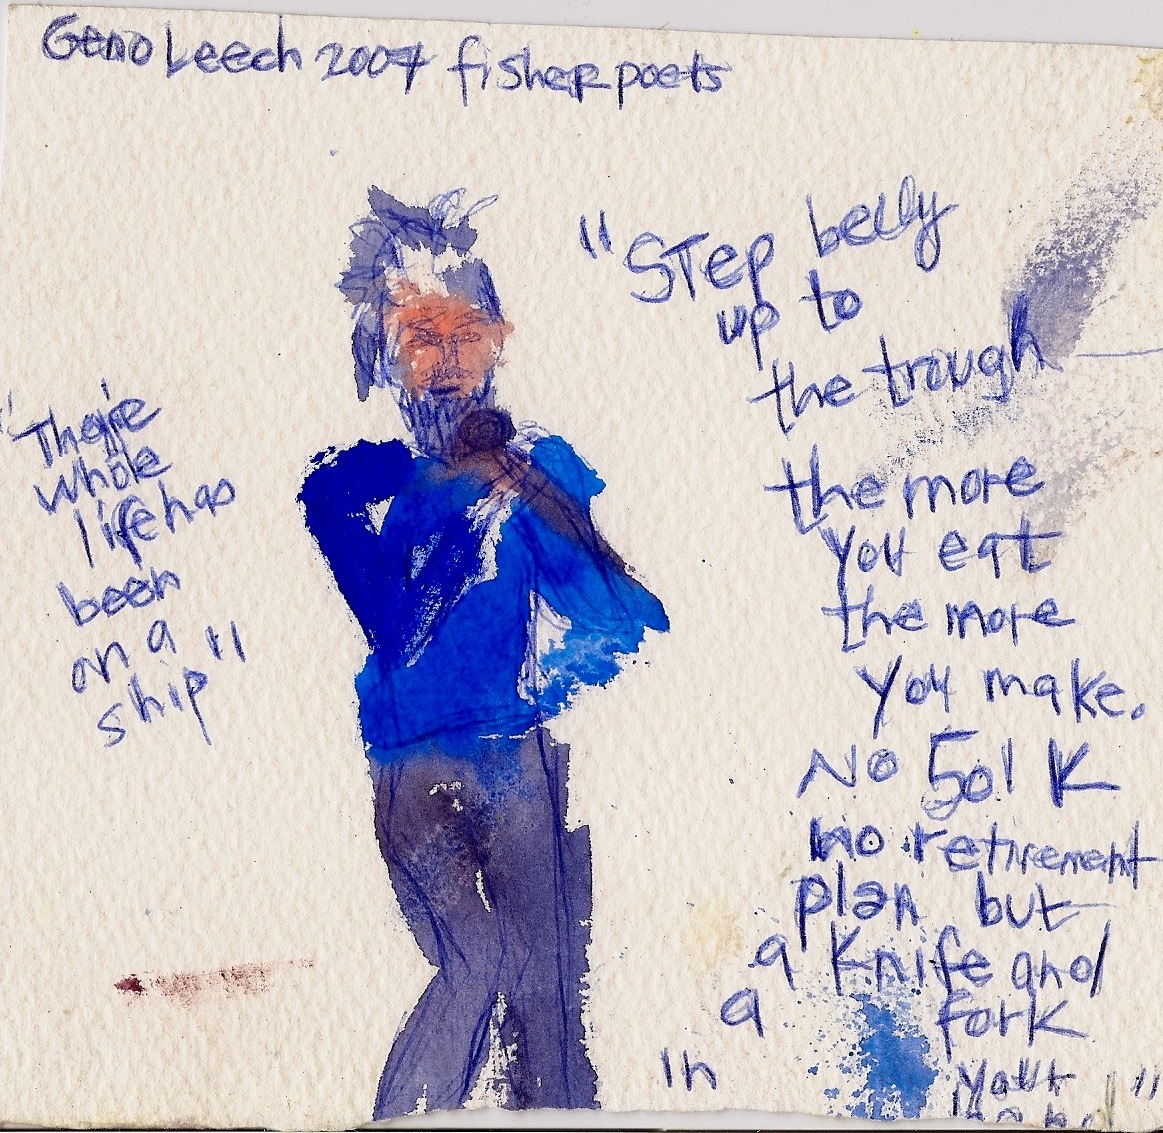 Geno Leech 2007 fisherpoets
"Step belly
up to
the trough
the more
you eat
the more
you make.
No 501 K
no retirement
plan but
a knife and
a fork
in your
"
"There
whole
life has
been
on a
ship"